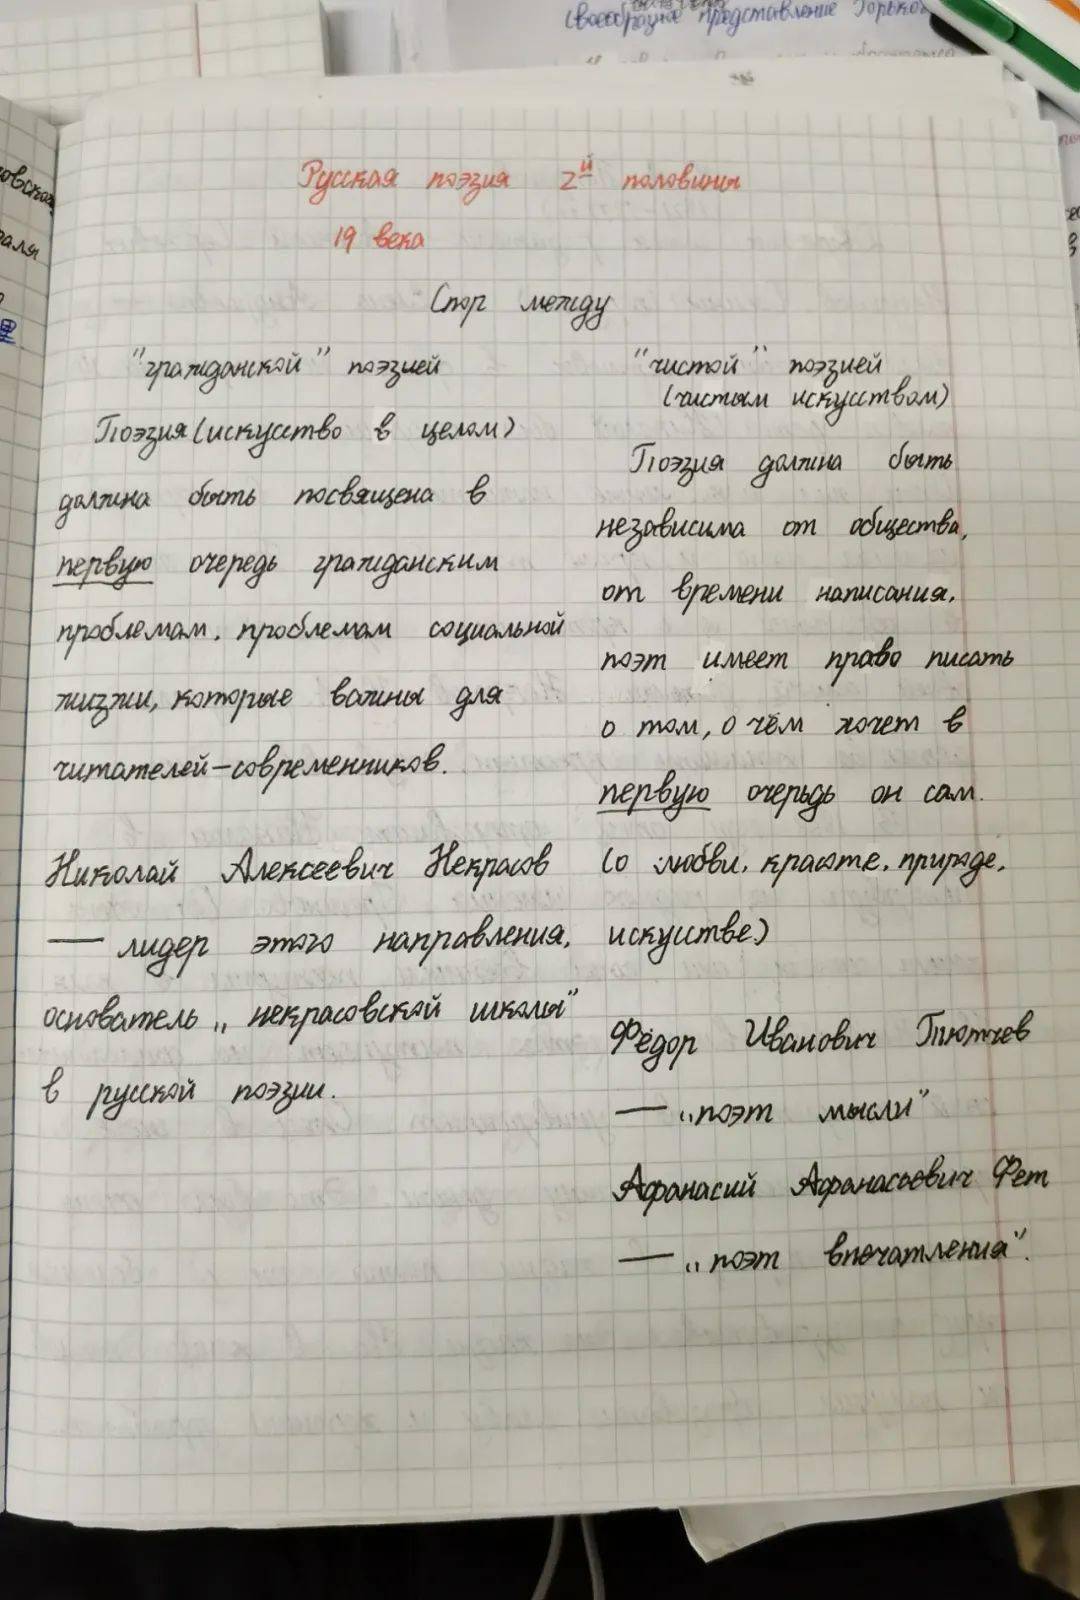 Своеобразное представление Горько
Русская поэзия 2й половины
19 века
Спор между
"гражданской" поэзией
Поэзия (искусство в целом)
должна быть посвящена в
первую очередь гражданским
проблемам, проблемам социальной
жизни, которые важны для
читателей-современников.
Николай Алексеевич Некрасов
— лидер этого направления,
основатель „некрасовской школы"
в русской поэзии.
"чистой" поэзией
(чистым искусством)
Поэзия должна быть
независима от общества,
от времени написания,
поэт имеет право писать
о том, о чём хочет в
первую очередь он сам.
(о любви, красоте, природе,
искусстве)
Фёдор Иванович Тютчев
— „поэт мысли"
Афанасий Афанасьевич Фет
— „поэт впечатления".